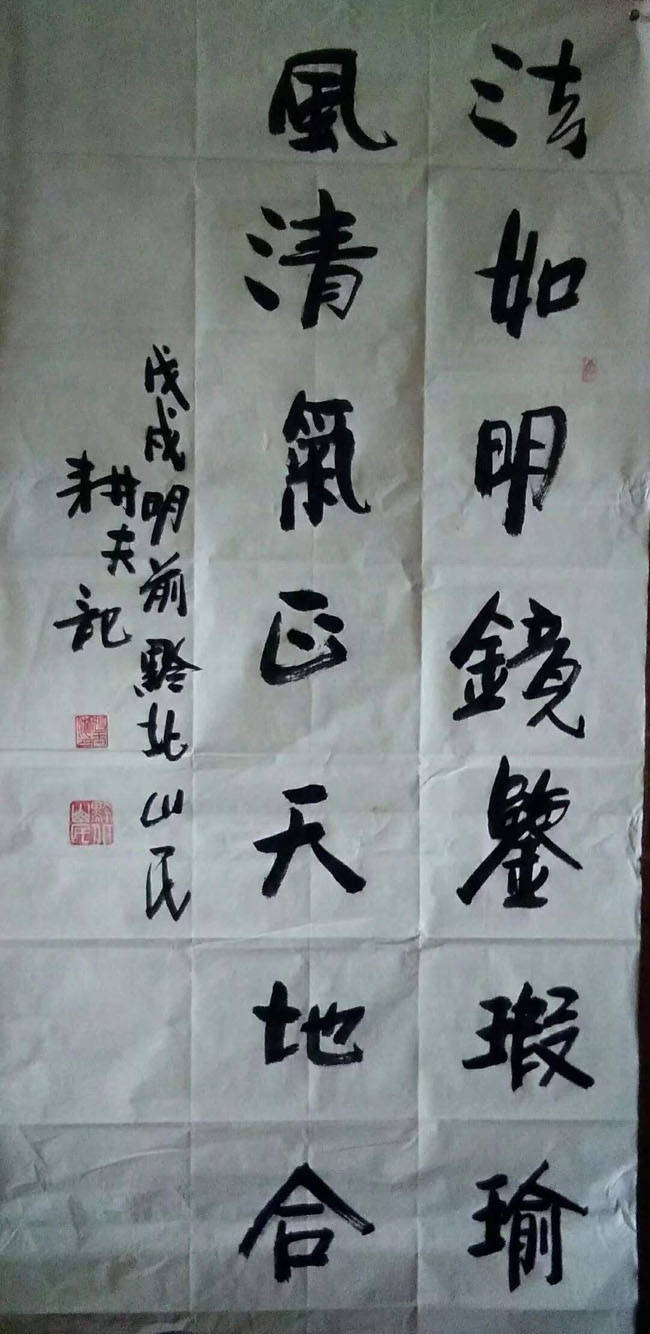 法如明鏡鑒瑕瑜
風清氣正天地合
戊戌明前黔北山民
耕夫記